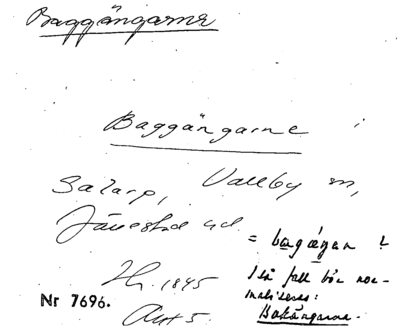 Baggängarne
Baggängarne
Salarp, Vallby sn,
Järrestad hd
= bagä̱ŋan ?
Hr. 1845
I så fall bör nor-
maliseras:
Bakängarna.
Nr 7696.
Akt 5.